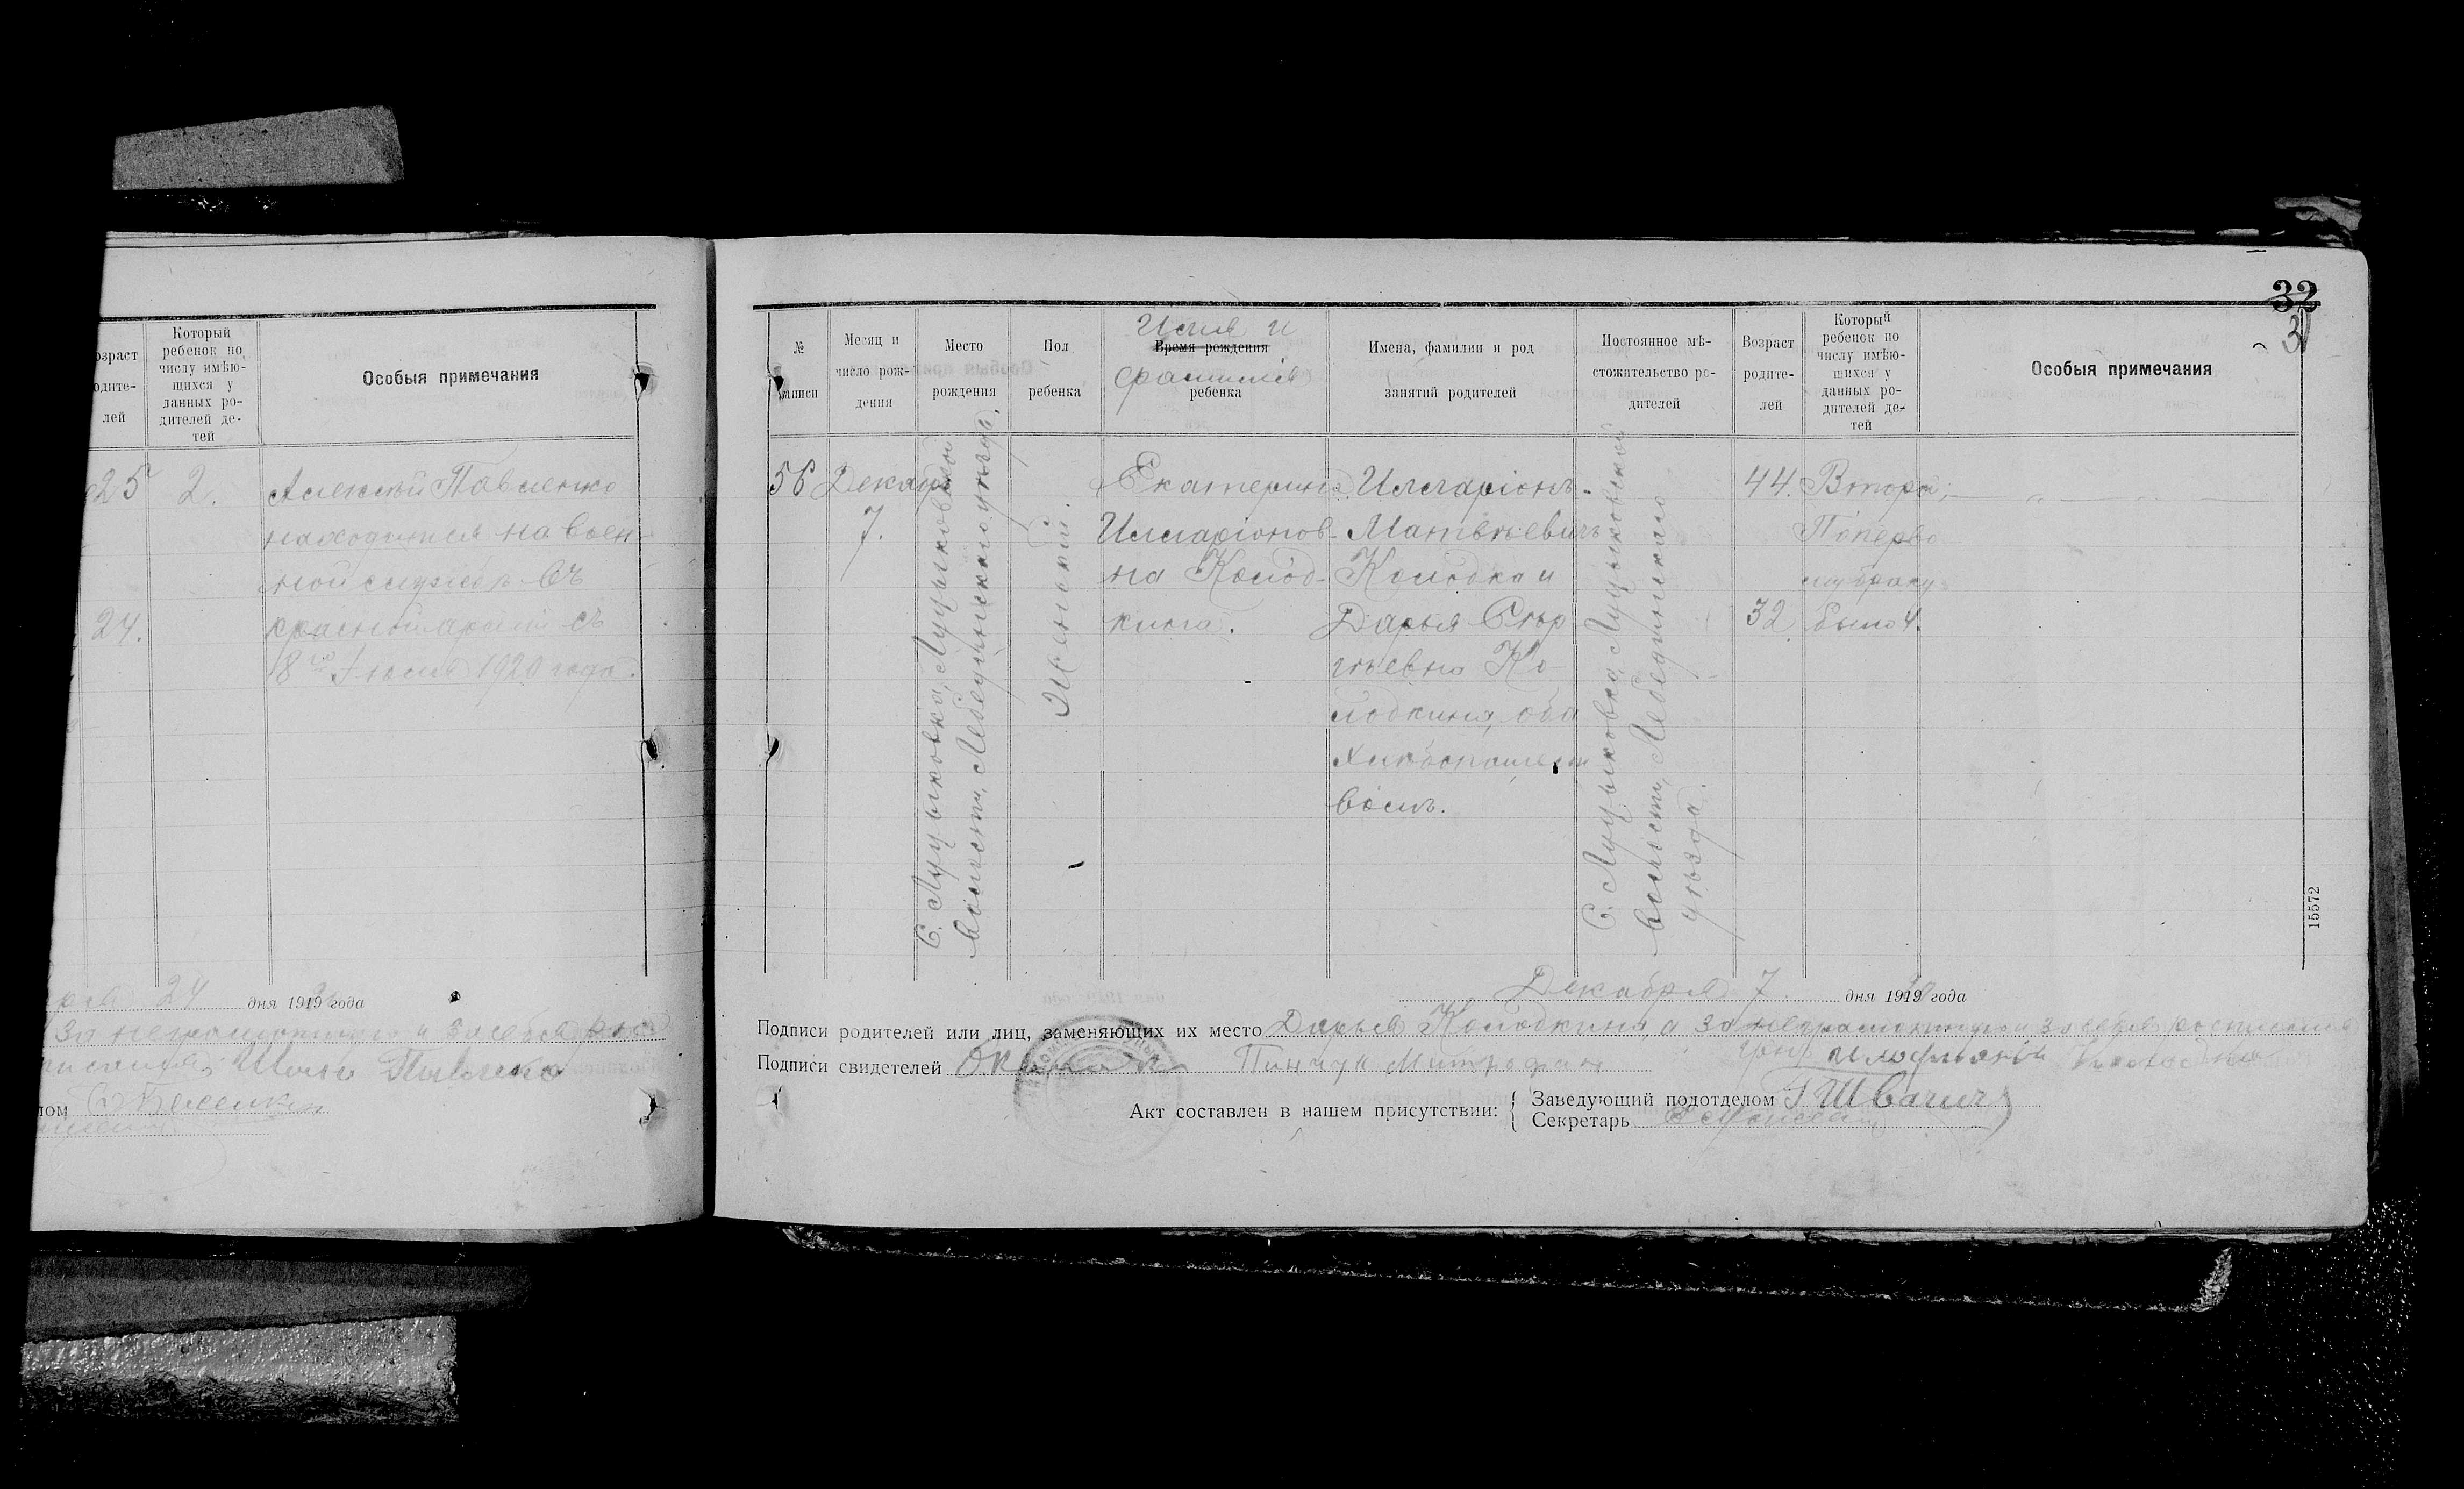 озраст
одите-
лей
Который
ребенок по
числу имѣю-
щихся у
данных ро-
дителей де-
тей
Особыя примечания
25
2.
Алексѣй Павленко
находится на воен-
ной службѣ въ
красной арміи съ
18го Іюля 1920 года.
24.
24 дня 1919 года
за неграмотного и за себя рос
писался
32
31
№
записи
Месяц и
число рож-
дения
Место
рождения
Пол
ребенка
Имя и
Время рождения
фамилія
ребенка
Имена, фамилии и род
занятий родителей
Постоянное мѣ-
стожительство ро-
дителей
Возраст
родите-
лей
Который
ребенок по
числу имѣю-
щихся у
данных ро-
дителей де-
тей
Особыя примечания
56
Декабря
7.
С. Луцыковка, Луцыковской
волости, Лебединскаго уѣзда.
Женский.
Екатерина
Илларіонов-
на Колод-
кина.
Илларіонъ
Матвѣевичъ
Колодка и
Дарья Егор
гѣевна Ко-
лодкина, оба
хлѣбопашест
вомъ.
С. Луцыковка, Луцыковской
волости, Лебединскаго
уѣзда.
44.
32
Вторая,
По перво
му браку
было 4.
15572
Декабря 7 дня 1919 года
Подписи родителей или лиц, заменяющих их место Дарья Колодкина, а за неграмотную и за себя росписался
Подписи свидетелей Пинчук Митрофан
Акт составлен в нашем присутствии:
Заведующий подотделом Г Швачич
Секретарь